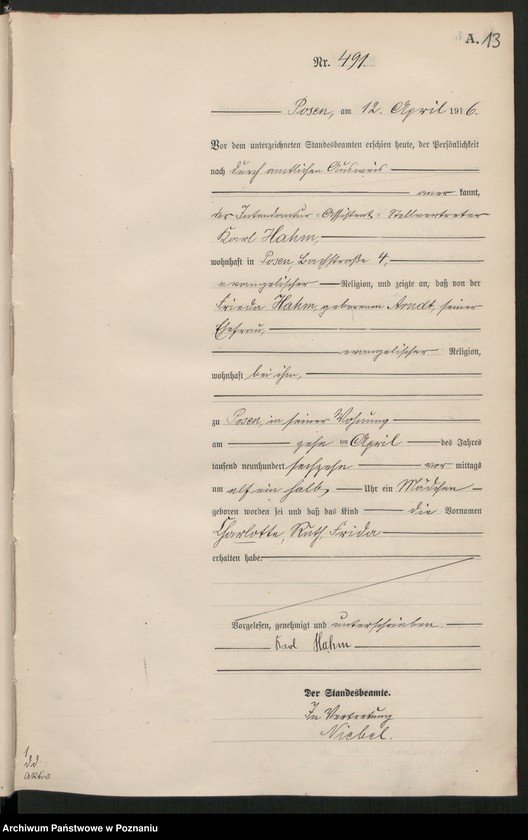 A. 13
Nr. 491.
Posen, am 12. April 1916.
Vor dem unterzeichneten Standesbeamten erschien heute, der Persönlichkeit
nach durch amtlichen Ausweis
aner kannt,
der Intendantur-Assistent-Stellvertreter
Karl Hahm,
wohnhaft in Posen, Bachstraße 4,
evangelischer Religion, und zeigte an, daß von der
Frieda Hahm, geborenen Arndt, seiner
Ehefrau,
evangelischer Religion,
wohnhaft bei ihm,
zu Posen, in seiner Wohnung
am zehn ten April des Jahres
tausend neunhundert sechzehn vor mittags
um elf ein halb Uhr ein Mädchen
geboren worden sei und daß das Kind die Vornamen
Charlotte, Ruth, Frida
erhalten habe.
Vorgelesen, genehmigt und unterschrieben.
Karl Hahm
Der Standesbeamte.
In Vertretung
Niebel.
Archiwum Państwowe w Poznaniu